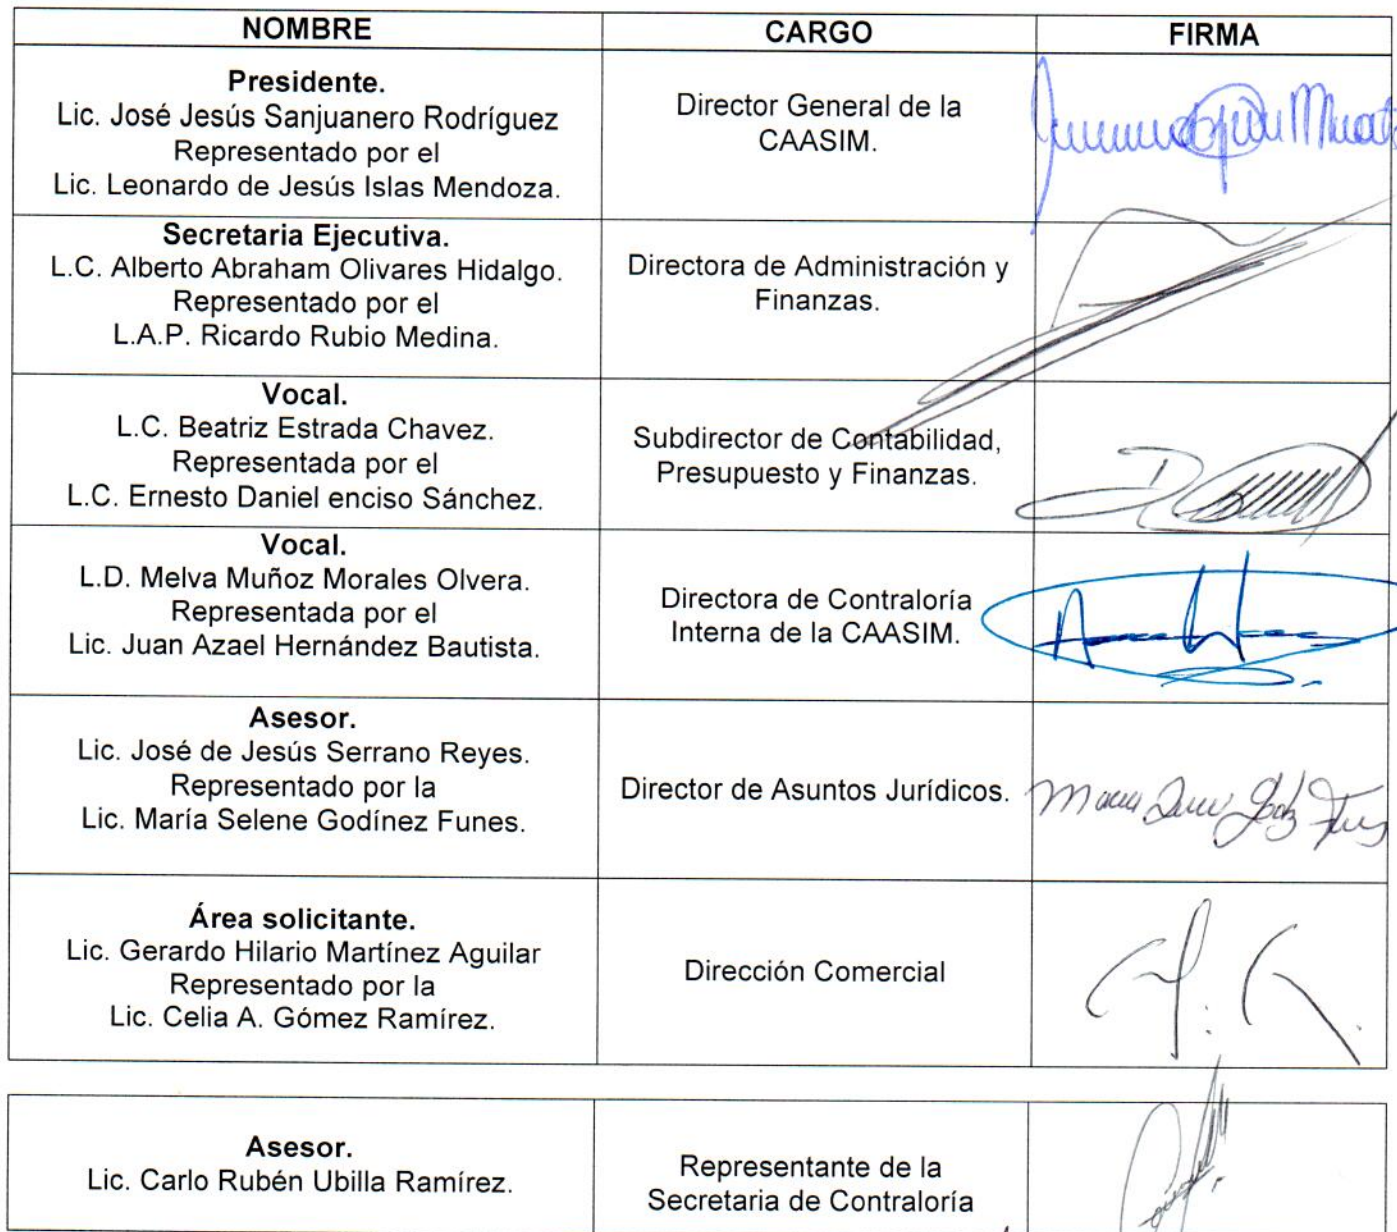 NOMBRE
CARGO
FIRMA
Presidente.
Lic. José Jesús Sanjuanero Rodríguez
Representado por el
Lic. Leonardo de Jesús Islas Mendoza.
Director General de la
CAASIM.
Secretaria Ejecutiva.
L.C. Alberto Abraham Olivares Hidalgo.
Representado por el
L.A.P. Ricardo Rubio Medina.
Directora de Administración y
Finanzas.
Vocal.
L.C. Beatriz Estrada Chavez.
Representada por el
L.C. Ernesto Daniel enciso Sánchez.
Subdirector de Contabilidad,
Presupuesto y Finanzas.
Vocal.
L.D. Melva Muñoz Morales Olvera.
Representada por el
Lic. Juan Azael Hernández Bautista.
Directora de Contraloría
Interna de la CAASIM.
Asesor.
Lic. José de Jesús Serrano Reyes.
Representado por la
Lic. María Selene Godínez Funes.
Director de Asuntos Jurídicos.
Área solicitante.
Lic. Gerardo Hilario Martínez Aguilar
Representado por la
Lic. Celia A. Gómez Ramírez.
Dirección Comercial
Asesor.
Lic. Carlo Rubén Ubilla Ramírez.
Representante de la
Secretaria de Contraloría